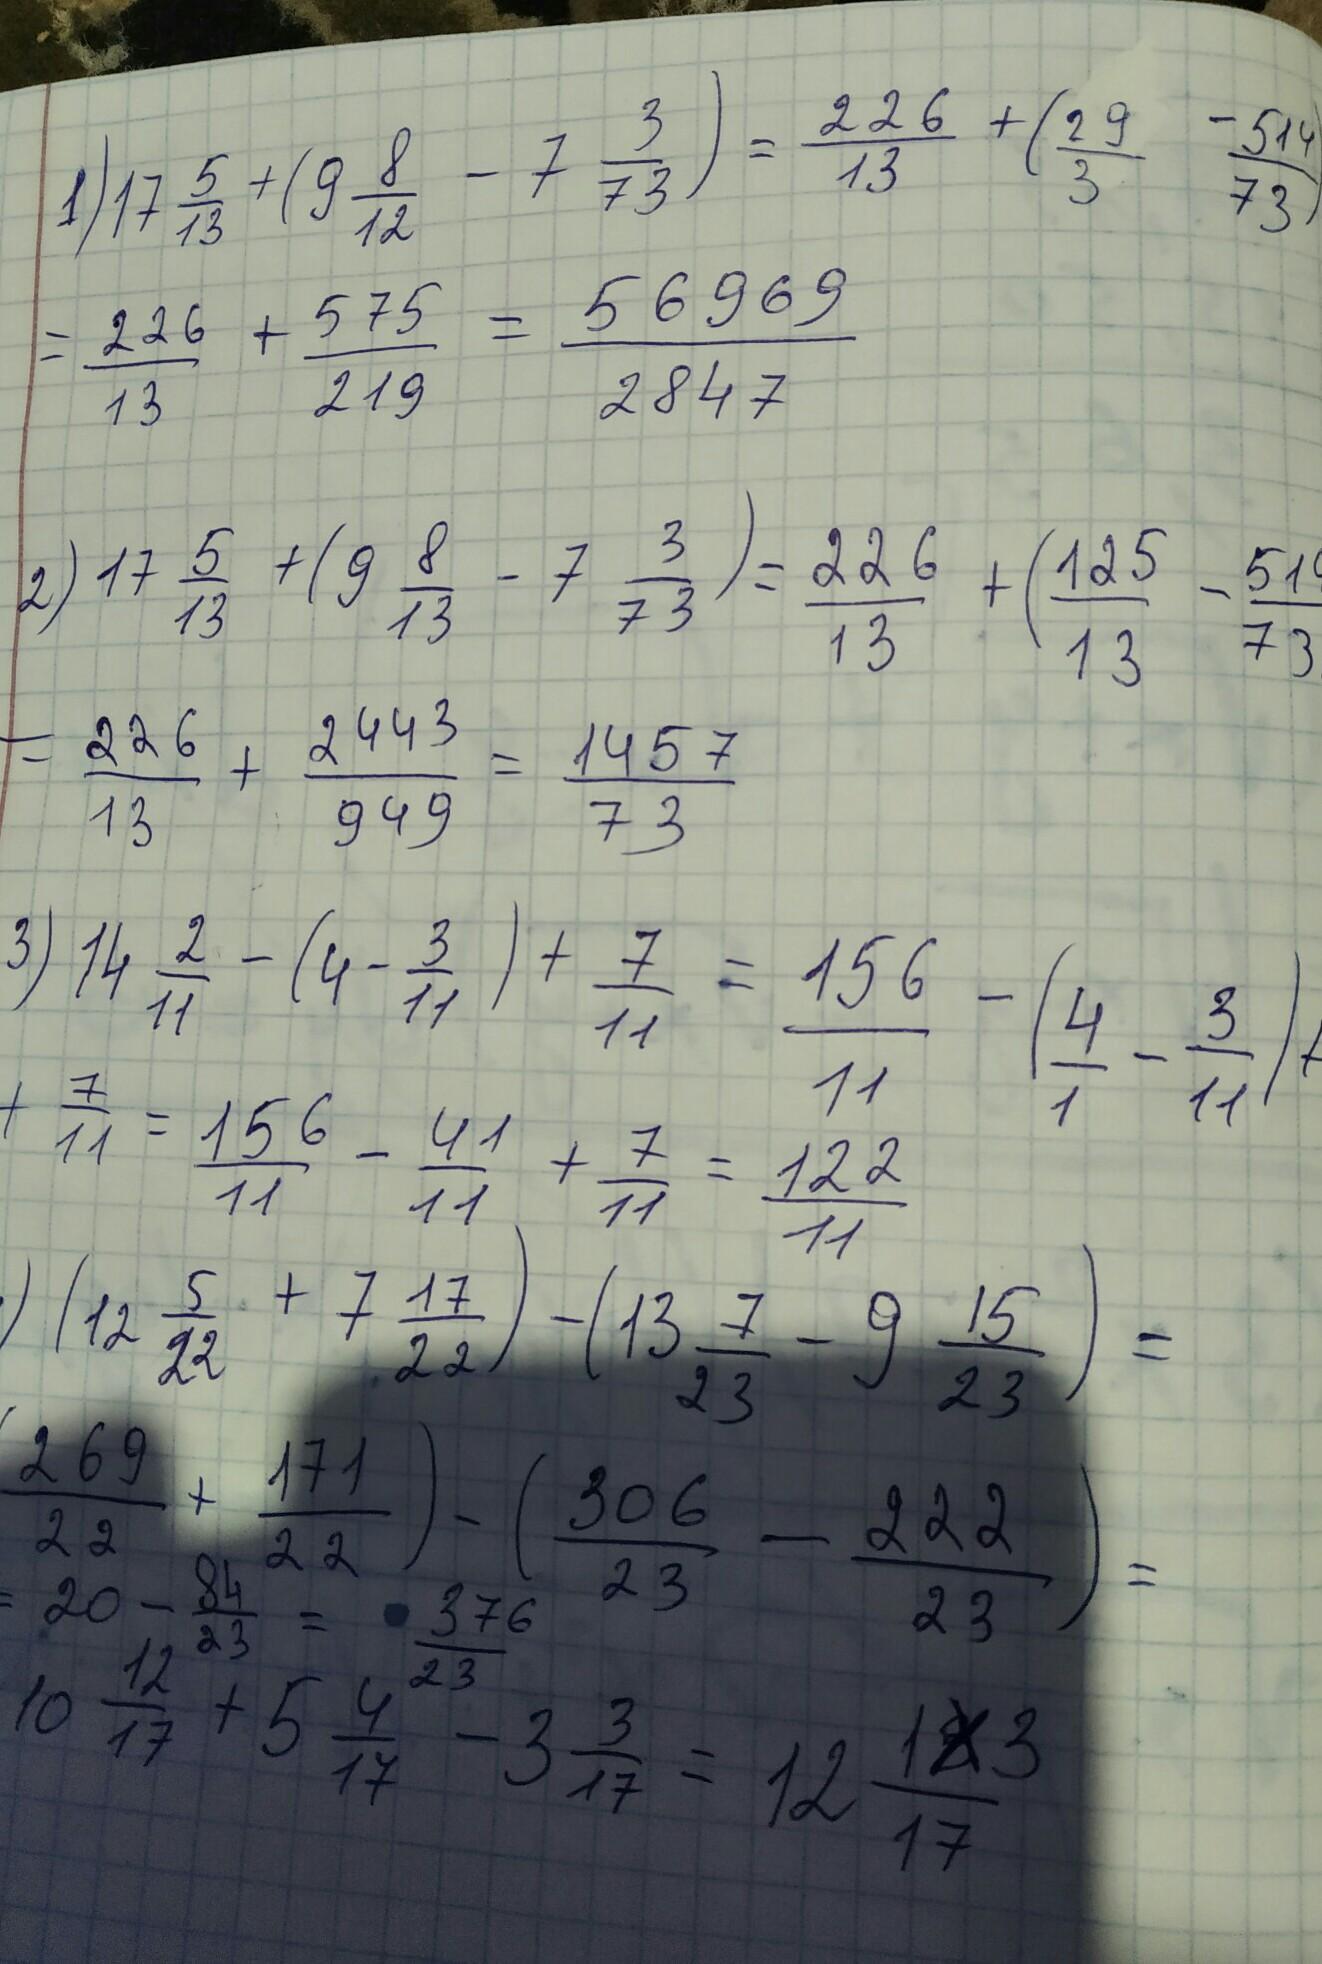 1) 17 5/13 + (9 8/12 - 7 3/73) = 226/13 + (29/3 - 514/73)
= 226/13 + 575/219 = 56969/2847
2) 17 5/13 + (9 8/13 - 7 3/73) = 226/13 + (125/13 - 514/73
= 226/13 + 2443/949 = 1457/73
3) 14 2/11 - (4 - 3/11) + 7/11 = 156/11 - (4/1 - 3/11) +
+ 7/11 = 156/11 - 41/11 + 7/11 = 122/11
) (12 5/22 + 7 17/22) - (13 7/23 - 9 15/23) =
(269/22 + 171/22) - (306/23 - 222/23) =
= 20 - 84/23 = 376/23
10 12/17 + 5 4/17 - 3 3/17 = 12 13/17